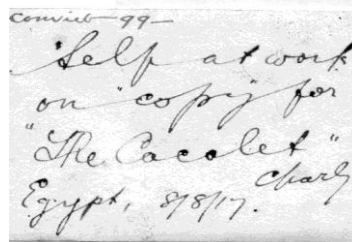 Convict-99-
Self at work
on "copy" for
"The Cacolet"
Charly
Egypt, 8/8/17.